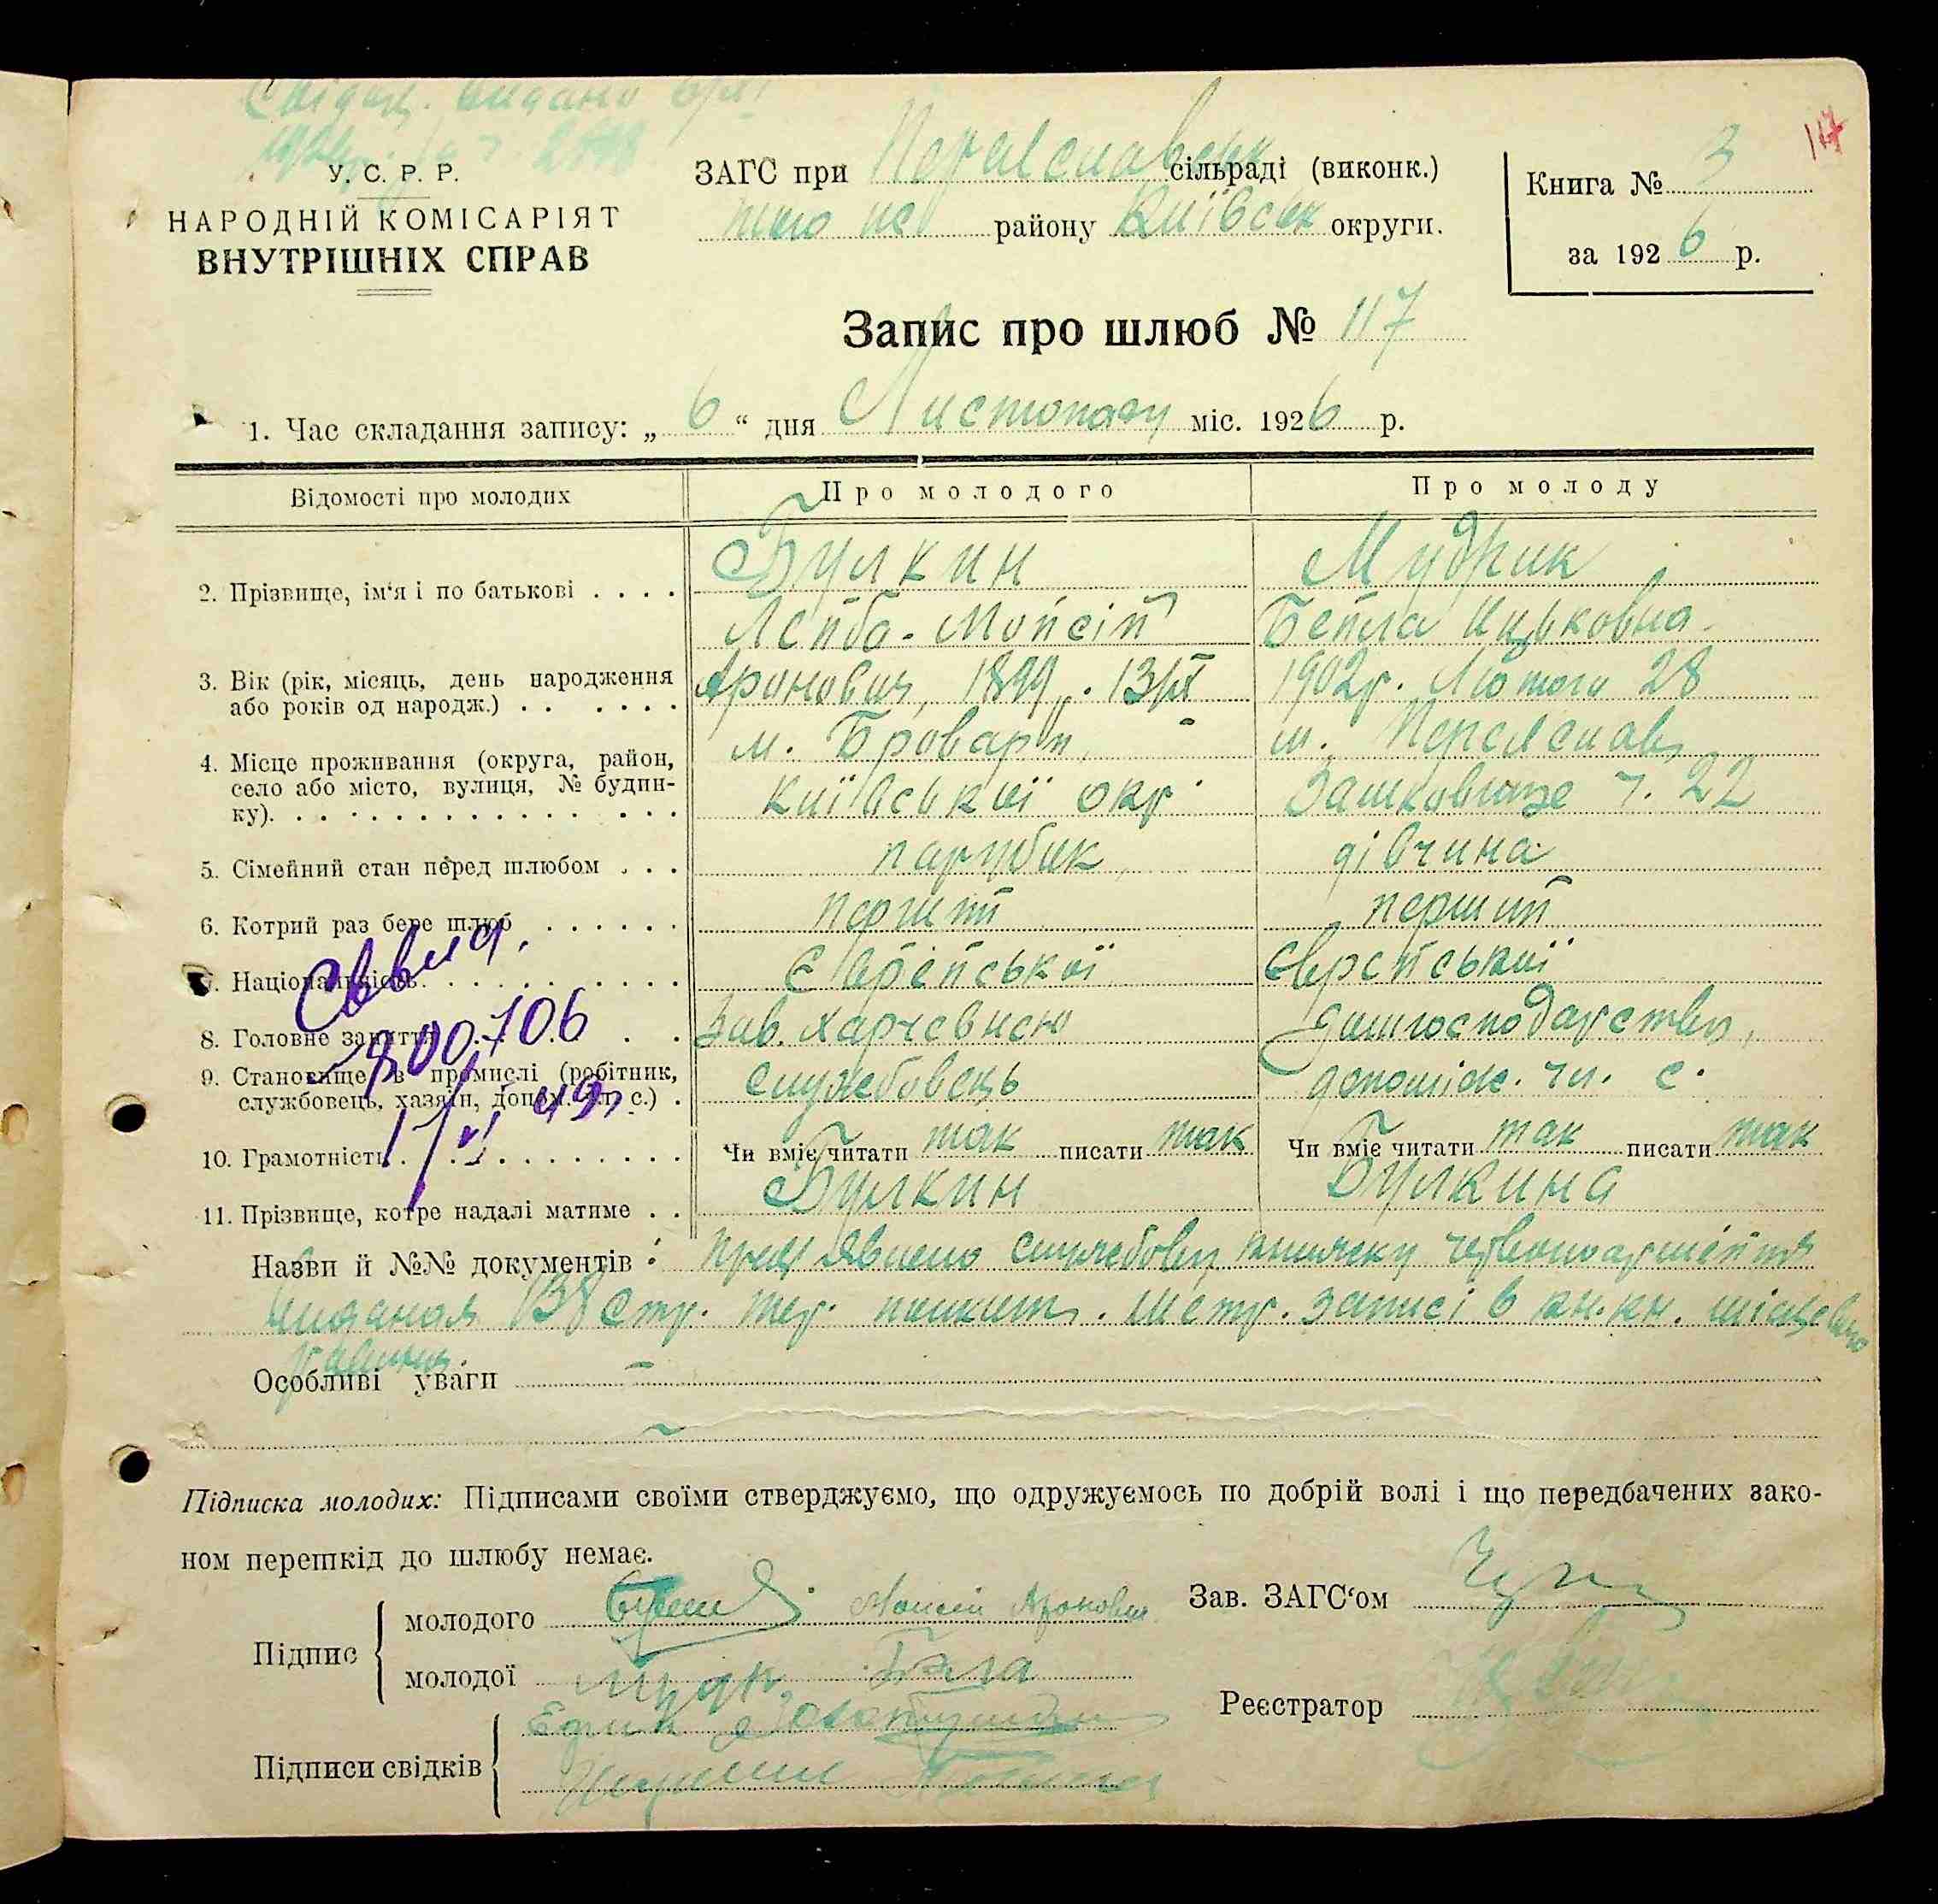 Свідоц. видано
У. С. Р. Р.
НАРОДНІЙ КОМІСАРІЯТ
ВНУТРІШНІХ СПРАВ
ЗАГС при Переяславськ сільраді (виконк.)
того же району Київськ округи.
Книга № 3
за 1926 р.
117
Запис про шлюб № 117
1. Час складання запису: „ 6 “ дня Листопаду міс. 1926 р.
Відомості про молодих Про молодого Про молоду
2. Прізвище, ім'я і по батькові . . . . Булкин Мудрик
Лейба-Мойсій Бейла Ицьковна
3. Вік (рік, місяць, день народження Аронович, 1899 р. 13/IX 1902 р. Лютого 28
або років од народж.) . . . . . .
4. Місце проживання (округа, район, м. Бровари, м. Переяслав,
село або місто, вулиця, № будин- Київської окр. ч. 22
ку). . . . . . . . . . . . . . . .
5. Сімейний стан перед шлюбом . . . парубок, дівчина
6. Котрий раз бере шлюб . . . . . . перший перший
7. Національність. . . . . . . . . . Єврейської Єврейської
8. Головне заняття . . . Зав. Харчевнею домгосподарство,
9. Становище в промислі (робітник, службовець допоміж. чл. с.
службовець, хазяїн, допом. чл. с.) .
10. Грамотність. . . . . . . . . . . Чи вміє читати так писати так Чи вміє читати так писати так
11. Прізвище, котре надалі матиме . . Булкин Булкина
Свид.
400706
1/VI 49р
Назви й №№ документів: пред'явлено службову книжку червоноармійця
видана 138 стр. тер. Метр. записі в кн. кн.
Особливі уваги —
Підписка молодих: Підписами своїми стверджуємо, що одружуємось по добрій волі і що передбачених зако-
ном перешкід до шлюбу немає.
Підпис
молодого Моисей Аронович
молодої Мудр. Бэла
Підписи свідків
Зав. ЗАГС'ом
Реєстратор